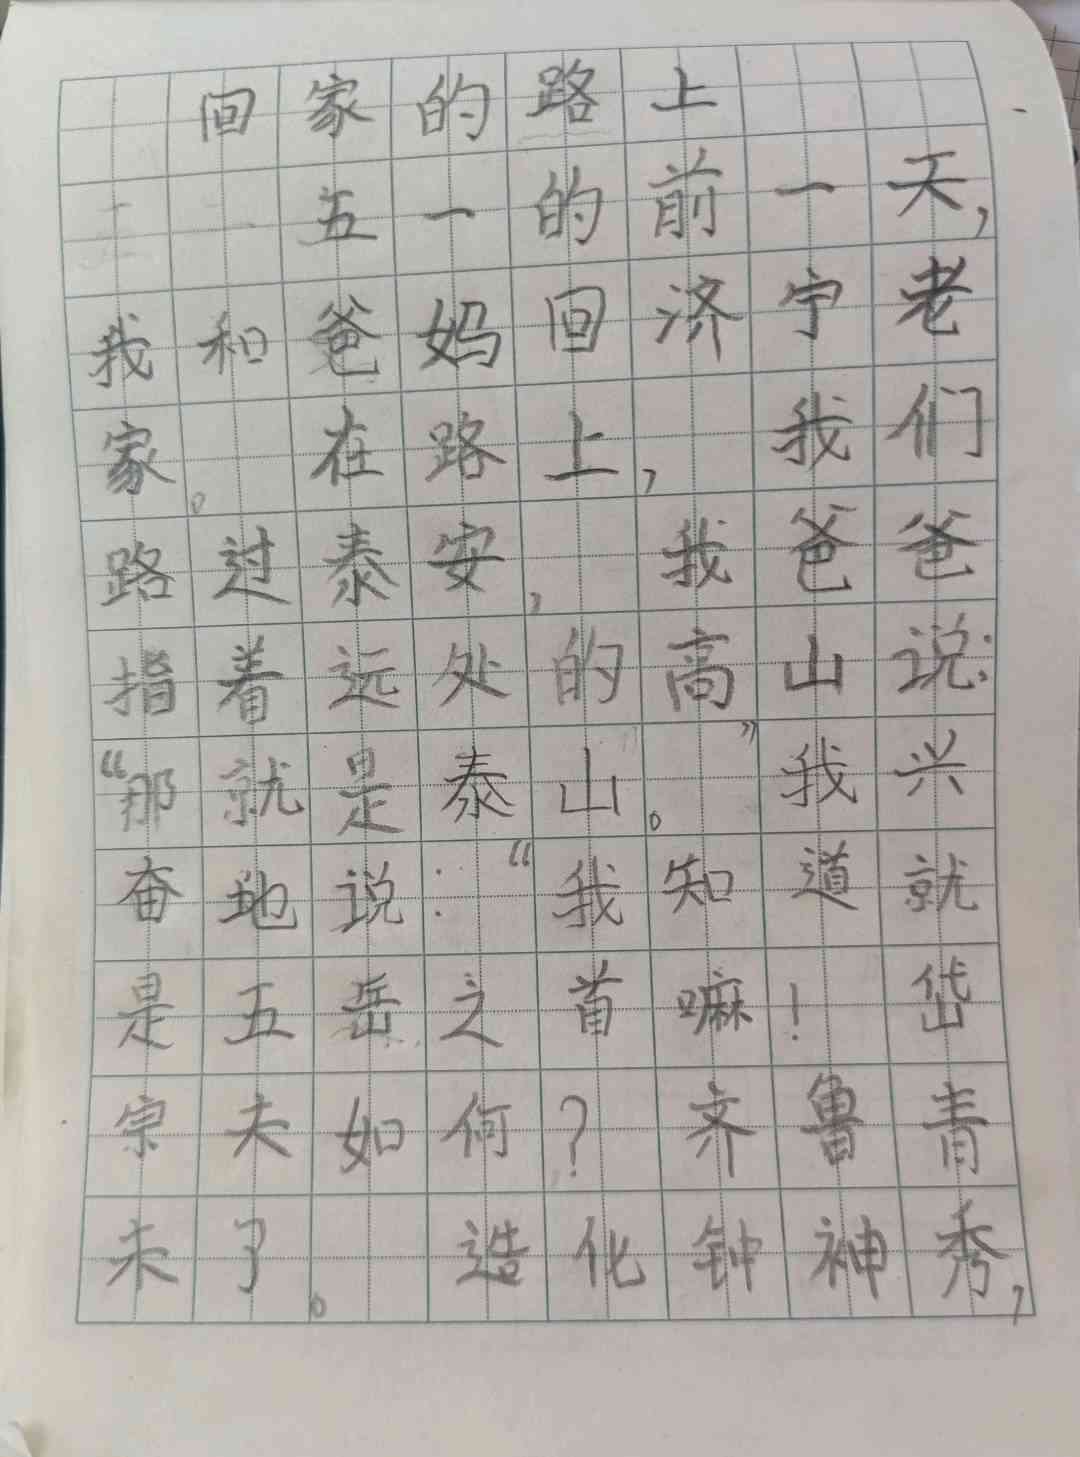 回家的路上
五一的前一天,
我和爸妈回济宁老
家。在路上,我们
路过泰安,我爸爸
指着远处的高山说:
“那就是泰山。”我兴
奋地说:“我知道就
是五岳之首嘛!岱
宗夫如何?齐鲁青
未了。造化钟神秀,